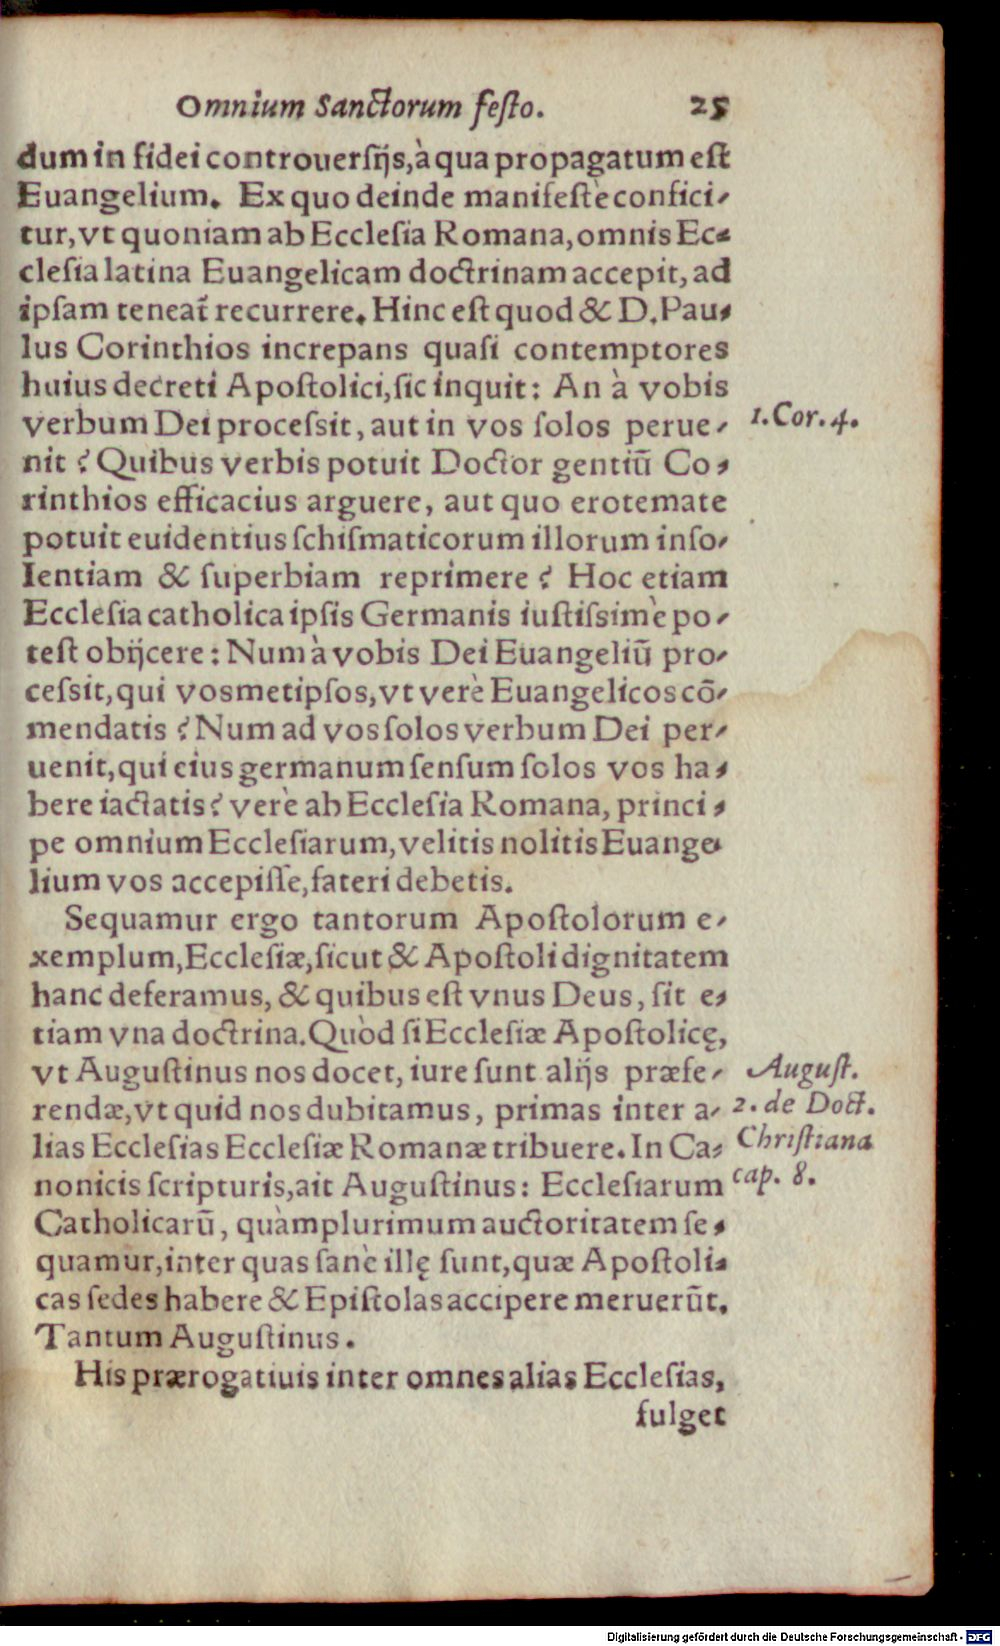 Omnium Sanctorum festo. 25
dum in fidei controuersijs, à qua propagatum est
Euangelium. Ex quo deinde manifestè confici-
tur, vt quoniam ab Ecclesia Romana, omnis Ec-
clesia latina Euangelicam doctrinam accepit, ad
ipsam teneat̃ recurrere. Hinc est quod & D. Pau-
lus Corinthios increpans quasi contemptores
huius decreti Apostolici, sic inquit: An à vobis
verbum Dei processit, aut in vos solos perue-
1. Cor. 4.
nit? Quibus verbis potuit Doctor gentiũ Co-
rinthios efficacius arguere, aut quo erotemate
potuit euidentius schismaticorum illorum inso-
lentiam & superbiam reprimere? Hoc etiam
Ecclesia catholica ipsis Germanis iustissimè po-
test obijcere: Num à vobis Dei Euangeliũ pro-
cessit, qui vosmetipsos, vt verè Euangelicos cõ-
mendatis? Num ad vos solos verbum Dei per-
uenit, qui eius germanum sensum solos vos ha-
bere iactatis? verè ab Ecclesia Romana, princi-
pe omnium Ecclesiarum, velitis nolitis Euange-
lium vos accepisse, fateri debetis.
Sequamur ergo tantorum Apostolorum e-
xemplum, Ecclesiæ, sicut & Apostoli dignitatem
hanc deferamus, & quibus est vnus Deus, sit e-
tiam vna doctrina. Quòd si Ecclesiæ Apostolicę,
vt Augustinus nos docet, iure sunt alijs præfe-
rendæ, vt quid nos dubitamus, primas inter a-
lias Ecclesias Ecclesiæ Romanæ tribuere. In Ca-
nonicis scripturis, ait Augustinus: Ecclesiarum
August.
2. de Doct.
Christiana
cap. 8.
Catholicarũ, quàmplurimum auctoritatem se-
quamur, inter quas sanè illę sunt, quæ Apostoli-
cas sedes habere & Epistolas accipere meruerũt.
Tantum Augustinus.
His prærogatiuis inter omnes alias Ecclesias,
fulget
Digitalisierung gefördert durch die Deutsche Forschungsgemeinschaft - DFG